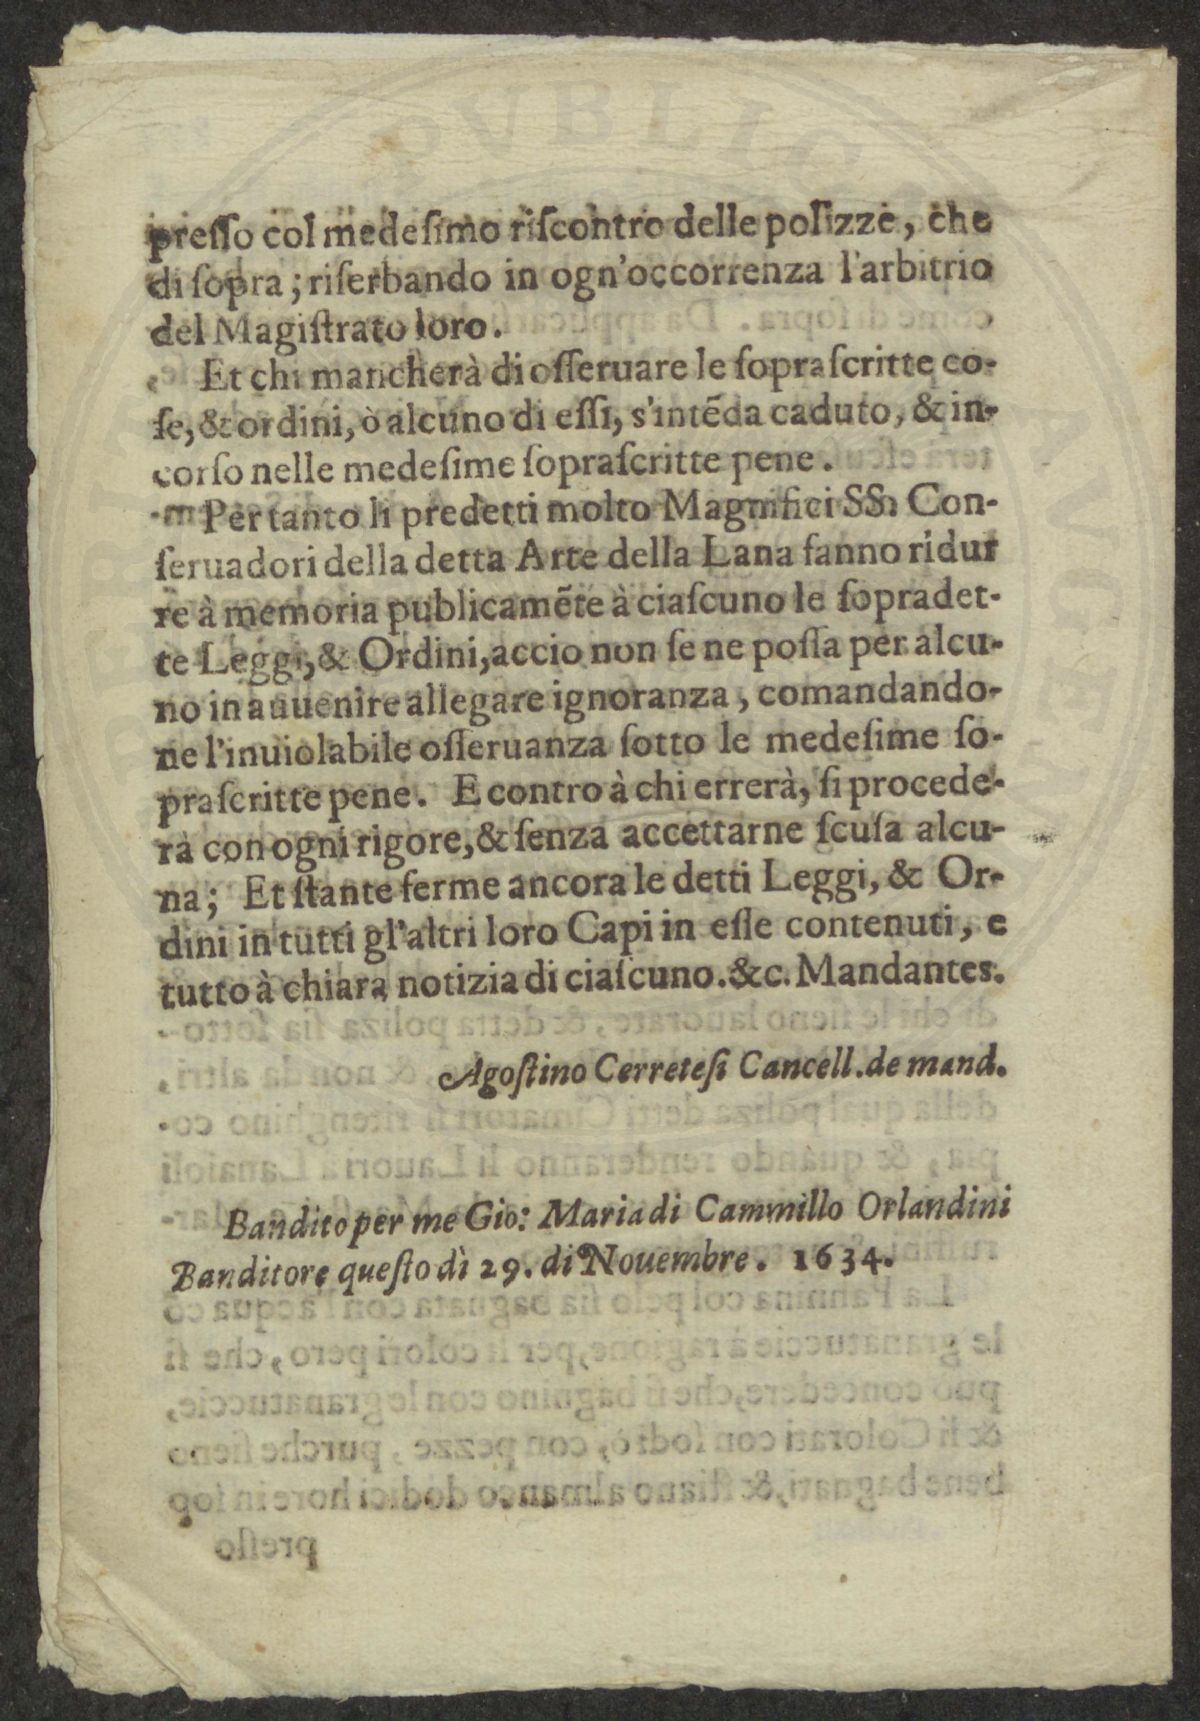 preſſo col medeſimo riſcontro delle polizze, che
di ſopra; riſerbando in ogn'occorrenza l'arbitrio
del Magiſtrato loro.
Et chi mancherà di oſſeruare le ſopraſcritte co-
ſe, & ordini, ò alcuno di eſſi, s'intẽda caduto, & in-
corſo nelle medeſime ſopraſcritte pene.
Per tanto li predetti molto Magnifici SS. Con-
ſeruadori della detta Arte della Lana fanno ridur
re à memoria publicamẽte à ciaſcuno le ſopradet-
te Leggi, & Ordini, accio non ſe ne poſſa per alcu-
no in auuenire allegare ignoranza, comandando-
ne l'inuiolabile oſſeruanza ſotto le medeſime ſo-
praſcritte pene. E contro à chi errerà, ſi procede-
rà con ogni rigore, & ſenza accettarne ſcuſa alcu-
na; Et ſtante ferme ancora le detti Leggi, & Or-
dini in tutti gl'altri loro Capi in eſſe contenuti, e
tutto à chiara notizia di ciaſcuno. &c. Mandantes.
Agoſtino Cerreteſi Cancell. de mand.
Bandito per me Gio: Maria di Cammillo Orlandini
Banditore queſto dì 29. di Nouembre. 1634.